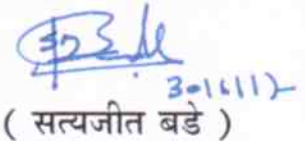 30/6/12
( सत्यजीत बडे )